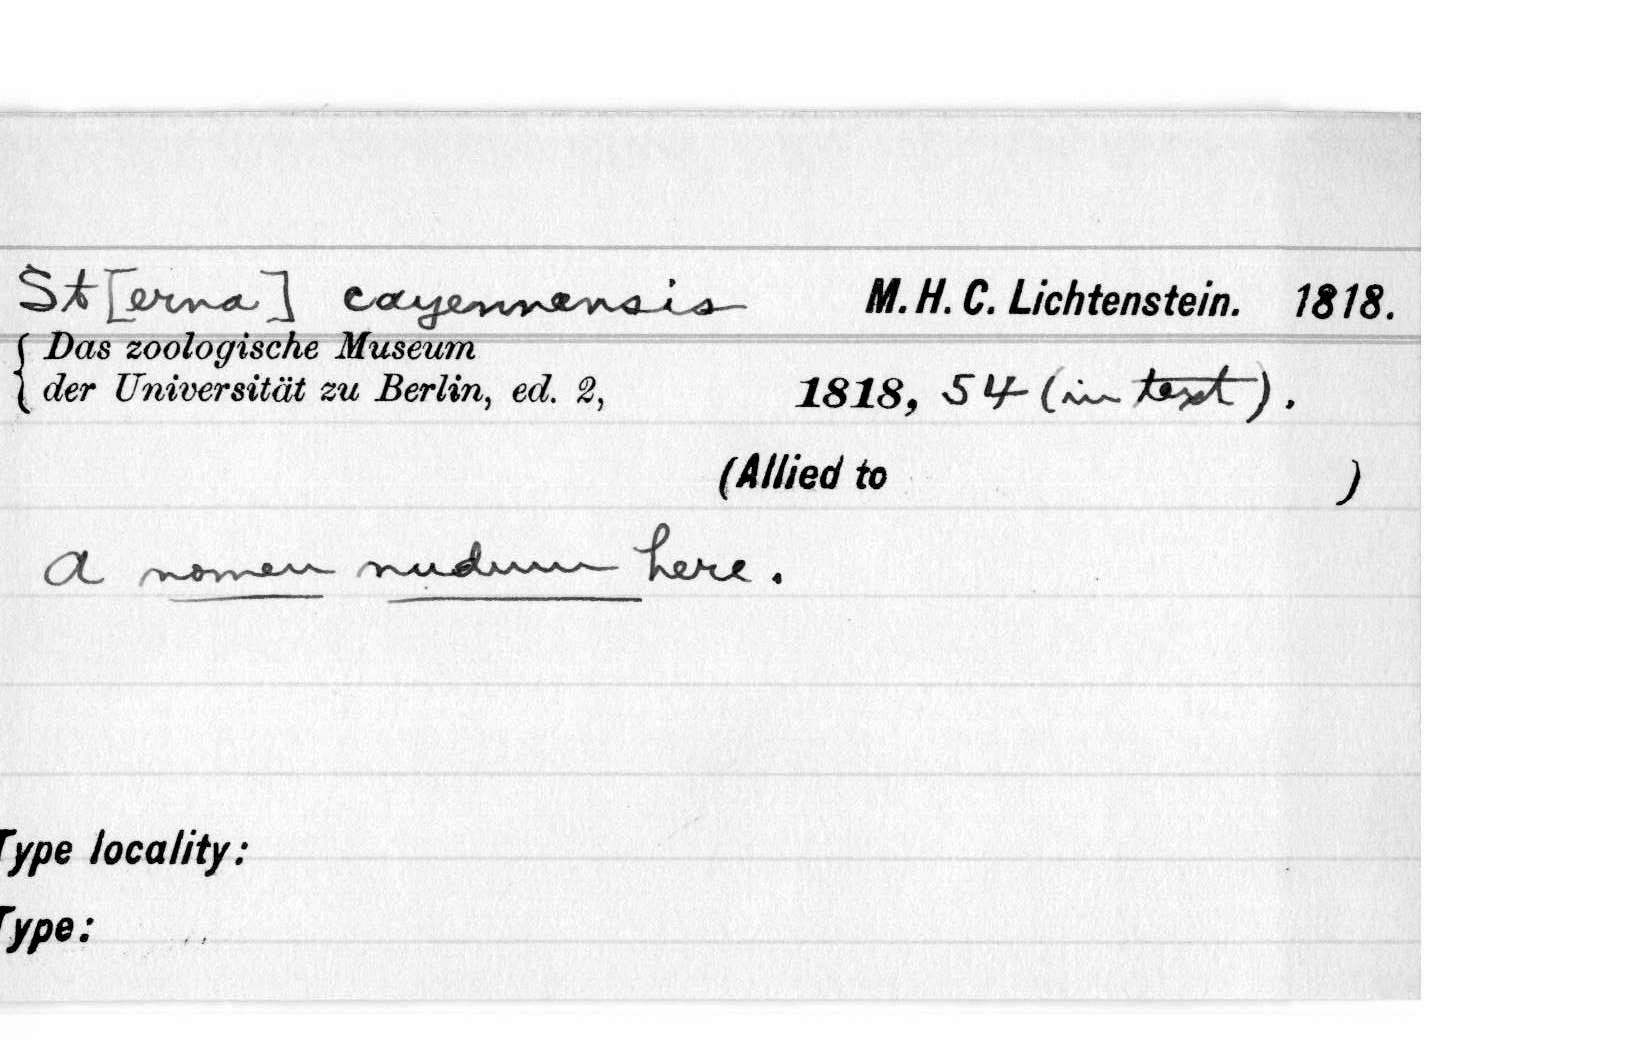 St[erna] cayennensis M. H. C. Lichtenstein. 1818.
Das zoologische Museum
der Universität zu Berlin, ed. 2, 1818, 54 (in text).
(Allied to )
A nomen nudum here.
Type locality:
Type: